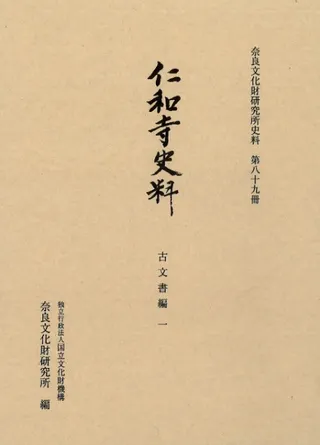 奈良文化財研究所史料 第八十九冊
仁和寺史料
古文書編 一
独立行政法人国立文化財機構
奈良文化財研究所 編